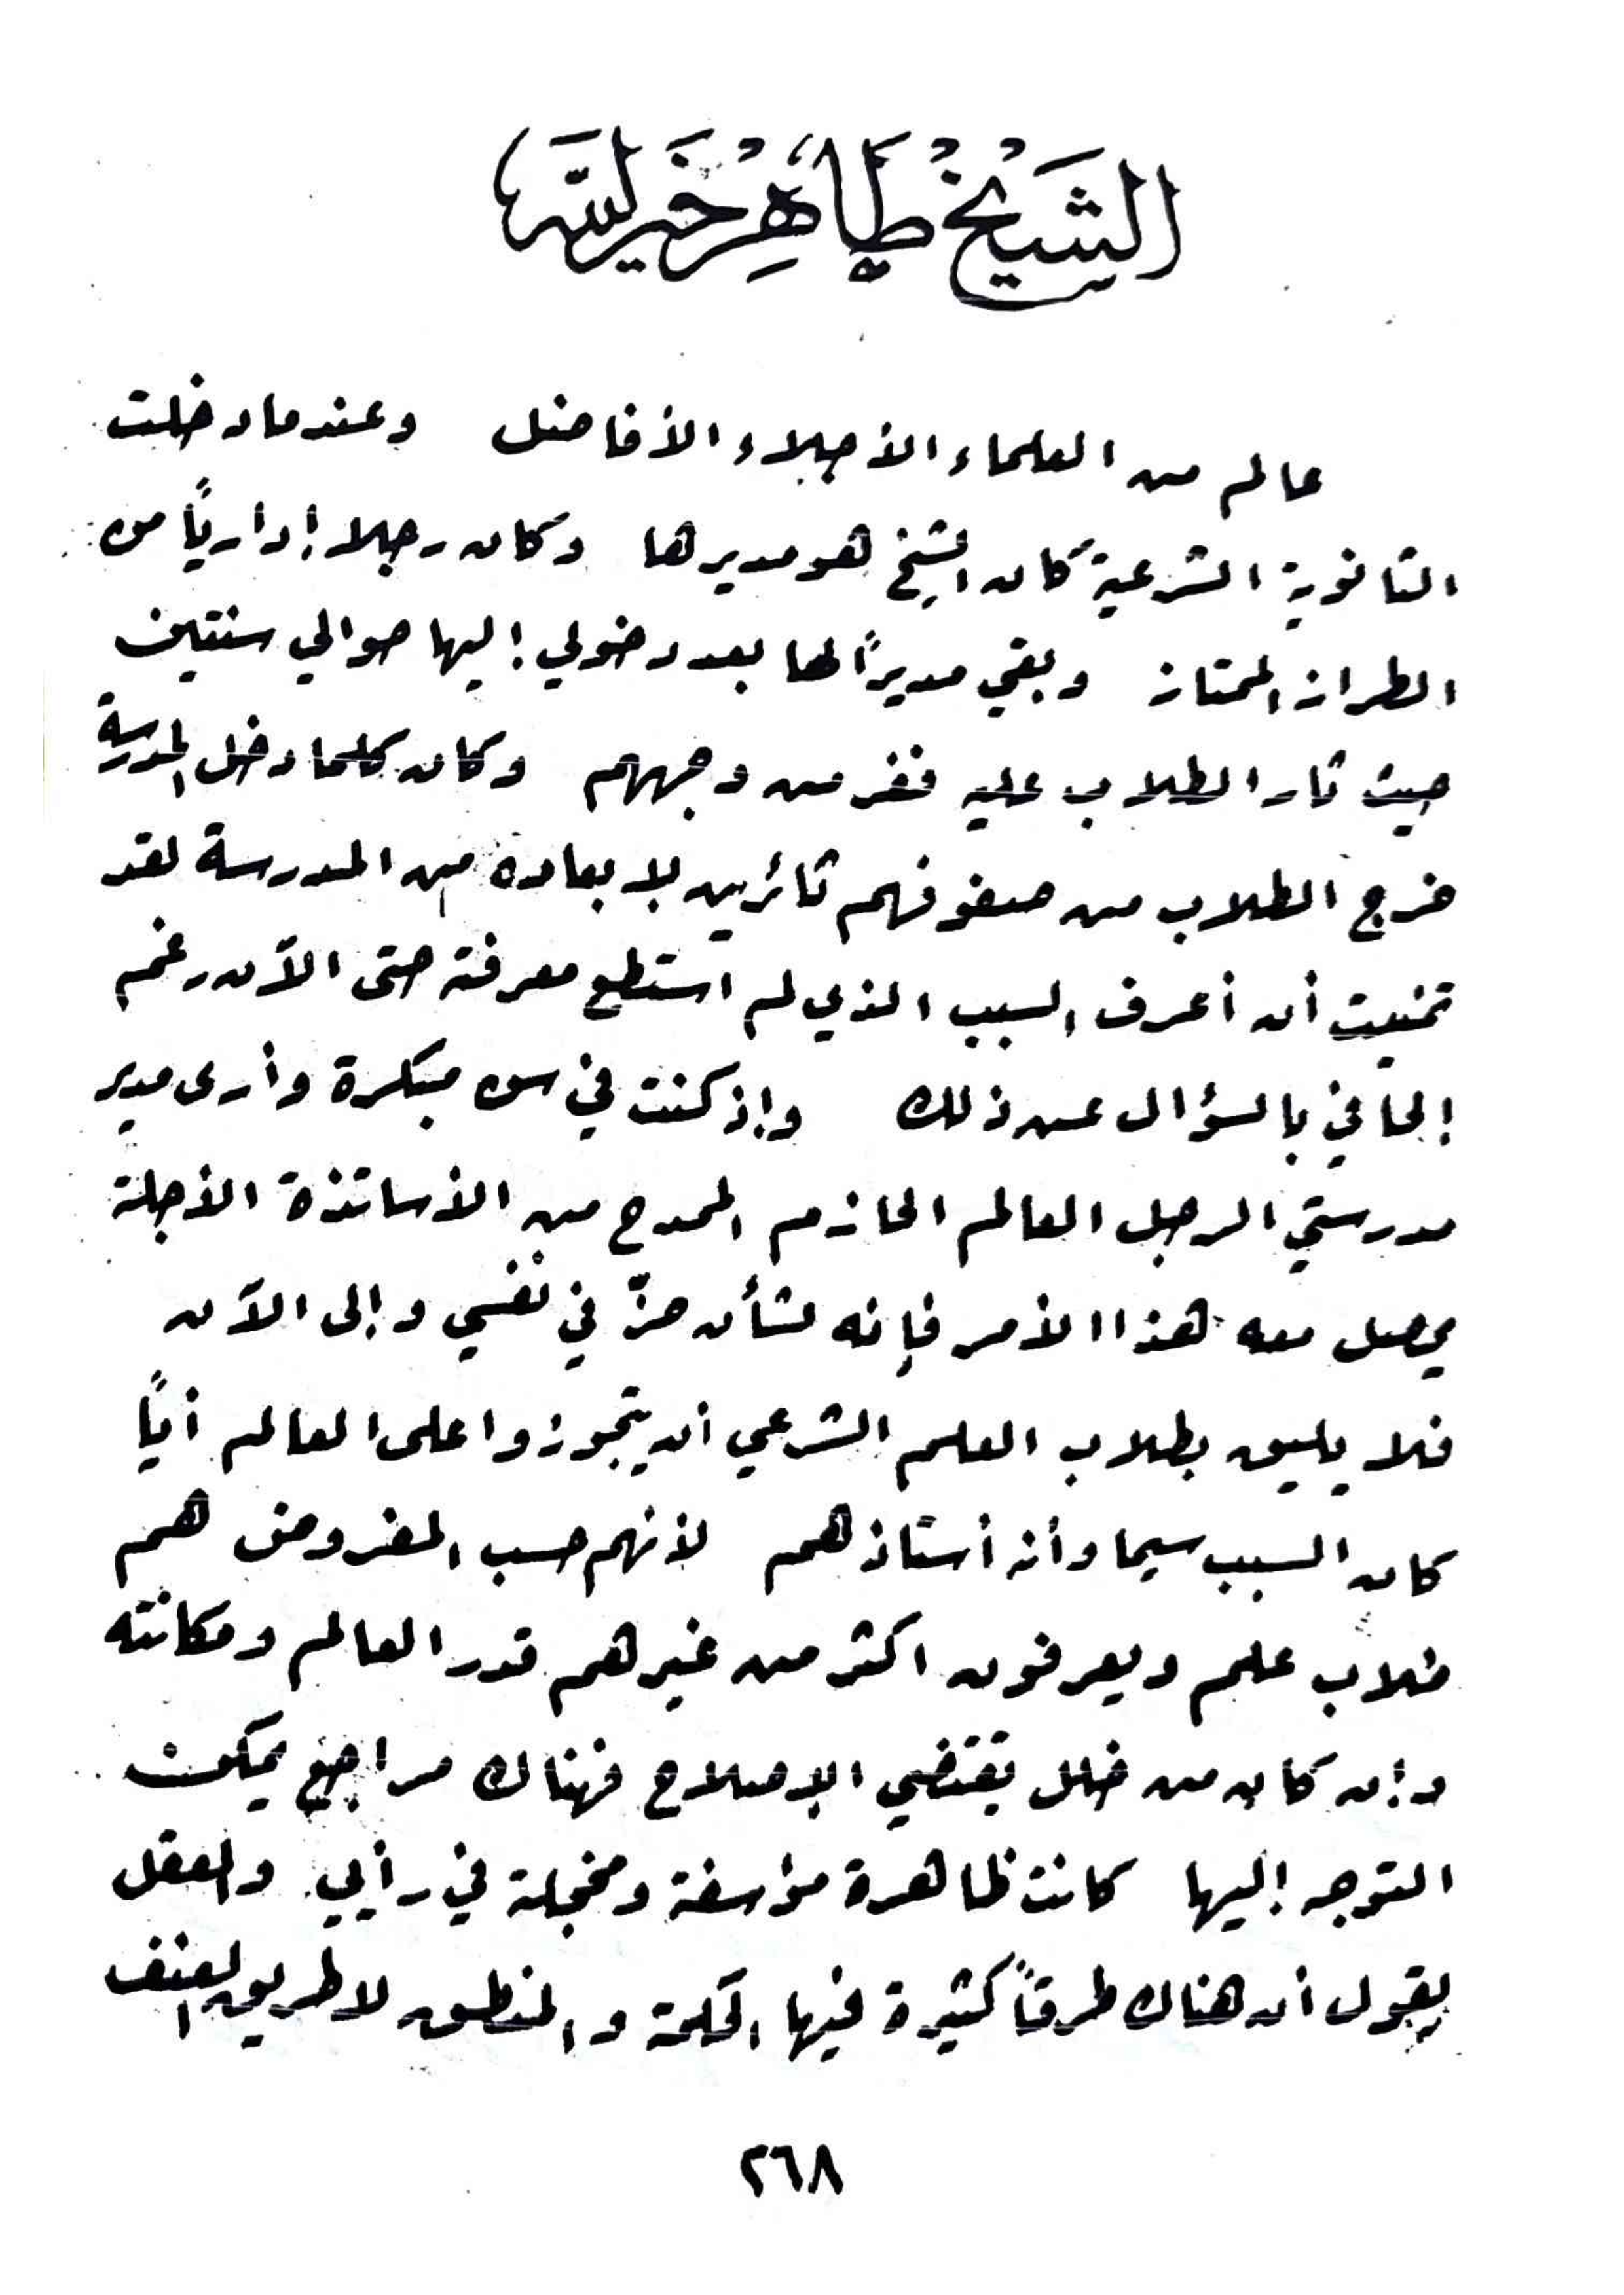 الشيخ طاهر خير الله
عالم من العلماء الأجلاء الأفاضل وعندما دخلت
الثانوية الشرعية كان الشيخ هو مديرها وكان رجلا إدارياً من
الطراز الممتاز وبقي مديراً لها بعد دخولي إليها حوالي سنتين
حيث ثار الطلاب عليه ففر من وجههم وكان كلما دخل المدرسة
خرج الطلاب من صفوفهم ثائرين لإبعاده من المدرسة لقد
تمنيت أن أعرف السبب الذي لم استطع معرفته حتى الآن رغم
إلحافي بالسؤال عن ذلك وإذ كنت في سن مبكرة وأرى مدير
مدرستي الرجل العالم الحازم الممدوح من الأساتذة الأجلة
يحصل معه هذا الأمر فإنه لشأن حزّ في نفسي وإلى الآن
فلا يليق بطلاب العلم الشرعي أن يتجوزوا على العالم أياً
كان السبب سيما وأنه أستاذهم لأنهم حسب المفروض هم
طلاب علم ويعرفون اكثر من غيرهم قدر العالم ومكانته
وإن كان من خلل يقتضي الإصلاح فهناك مراجع يمكن
التوجه إليها كانت ظاهرة مؤسفة ومخجلة في رأيي والعقل
يقول أن هناك طرقاً كثيرة فيها الحكمة والمنطق لا طريق العنف
٢٦٨